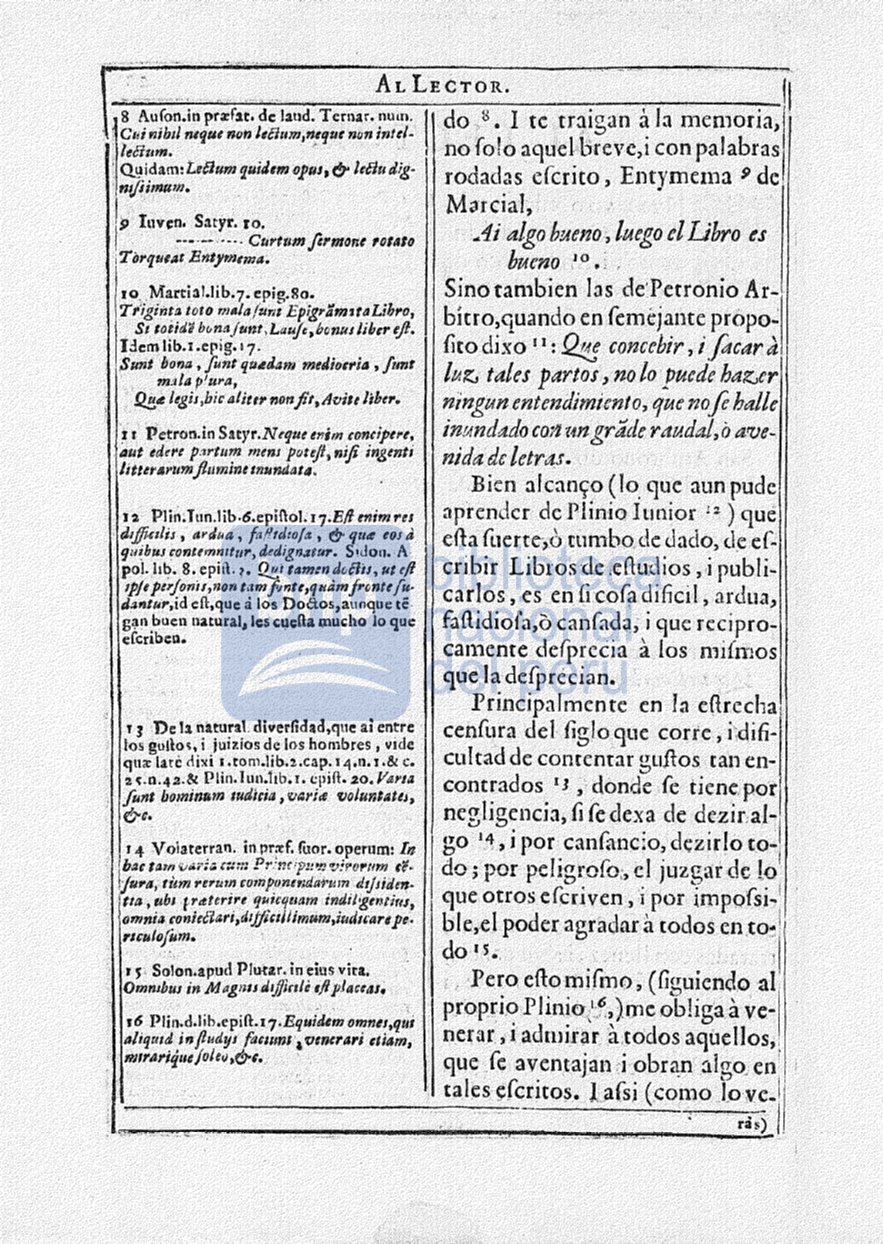 AL LECTOR.
8 Auson.in præfat. de laud. Ternar. num.
Cui nihil neque non lectum,neque non intel-
lectum.
Quidam: Lectum quidem opus, & lectu dig-
nissimum.
9 Iuven. Satyr. 10.
Curtum sermone rotato
Torqueat Entymema.
10 Martial.lib.7. epig.80.
Triginta toto mala sunt Epigrãmata Libro,
Si totidẽ bona sunt, Lause, bonus liber est.
Idem lib.1.epig.17.
Sunt bona, sunt quædam mediocria, sunt
mala plura,
Quæ legis, hic aliter non fit, Avite liber.
11 Petron.in Satyr. Neque enim concipere,
aut edere partum mens potest, nisi ingenti
litterarum flumine inundata.
12 Plin.Iun.lib.6.epistol.17. Est enim res
difficilis, ardua, fastidiosa, & quæ eos à
quibus contemnitur, dedignatur. Sidon. A
pol. lib. 8. epist. 7. Qui tamen doctis, ut est
ipse personis, non tam fonte, quàm fronte su-
dantur, id est, que à los Doctos, aunque tē
gan buen natural, les cuesta mucho lo que
escriben.
13 De la natural diversidad, que ai entre
los gustos, i juizios de los hombres, vide
quæ latè dixi 1.tom.lib.2.cap.14.n.1.& c.
25.n.42.& Plin.Iun.lib.1. epist. 20. Varia
sunt hominum iudicia, variæ voluntates,
&c.
14 Volaterran. in præf. suor. operum: In
hac tam varia cum Principum virorum cẽ-
sura, tùm rerum componendarum dissiden-
tia, ubi præterire quicquam indiligentius,
omnia coniectari, difficillimum, iudicare pe-
riculosum.
15 Solon.apud Plutar. in eius vita.
Omnibus in Magnis difficilè est placeas.
16 Plin.d.lib.epist.17. Equidem omnes, qui
aliquid in studys faciunt, venerari etiam,
mirarique soleo, &c.
do 8. I te traigan à la memoria,
no solo aquel breve, i con palabras
rodadas escrito, Entymema 9 de
Marcial,
Ai algo bueno, luego el Libro es
bueno 10.
Sino tambien las de Petronio Ar-
bitro, quando en semejante propo-
sito dixo 11: Que concebir, i sacar à
luz, tales partos, no lo puede hazer
ningun entendimiento, que no se halle
inundado con un grãde raudal, ò ave-
nida de letras.
Bien alcanço (lo que aun pude
aprender de Plinio Iunior 12) que
esta suerte, ò tumbo de dado, de es-
cribir Libros de estudios, i publi-
carlos, es en si cosa dificil, ardua,
fastidiosa, ò cansada, i que recipro-
camente desprecia à los mismos
que la desprecian.
Principalmente en la estrecha
censura del siglo que corre, i difi-
cultad de contentar gustos tan en-
contrados 13, donde se tiene por
negligencia, si se dexa de dezir al-
go 14, i por cansancio, dezirlo to-
do; por peligroso, el juzgar de lo
que otros escriven, i por impossi-
ble, el poder agradar à todos en to-
do 15.
Pero esto mismo, (siguiendo al
proprio Plinio 16,) me obliga à ve-
nerar, i admirar à todos aquellos,
que se aventajan i obran algo en
tales escritos. I assi (como lo ve-
ràs)
bnp
biblioteca
nacional
del perú